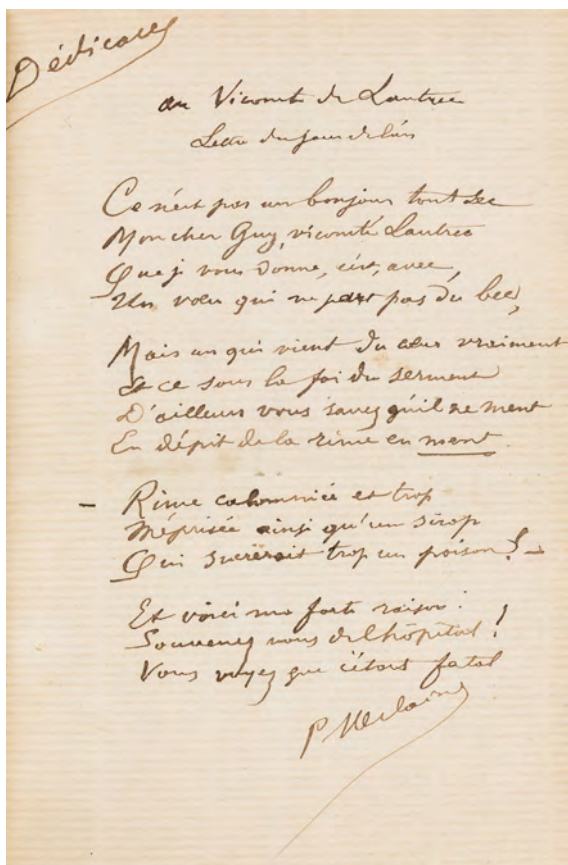 Dédicaces
au Vicomte de Lautrec
Lettre du jour de l'an
Ce n'est pas un bonjour tout sec
Mon cher Guy, vicomte Lautrec
Que je vous donne, c'est, avec,
Un vœu qui ne part pas du bec,
Mais un qui vient du cœur vraiment
Et ce sous la foi du serment
D'ailleurs vous savez qu'il ne ment
En dépit de la rime en ment.
– Rime calomniée et trop
Méprisée ainsi qu'un sirop
Qui sucrerait trop un poison! –
Et voici ma forte raison :
Souvenez vous de l'hôpital!
Vous voyez que c'était fatal
P Verlaine